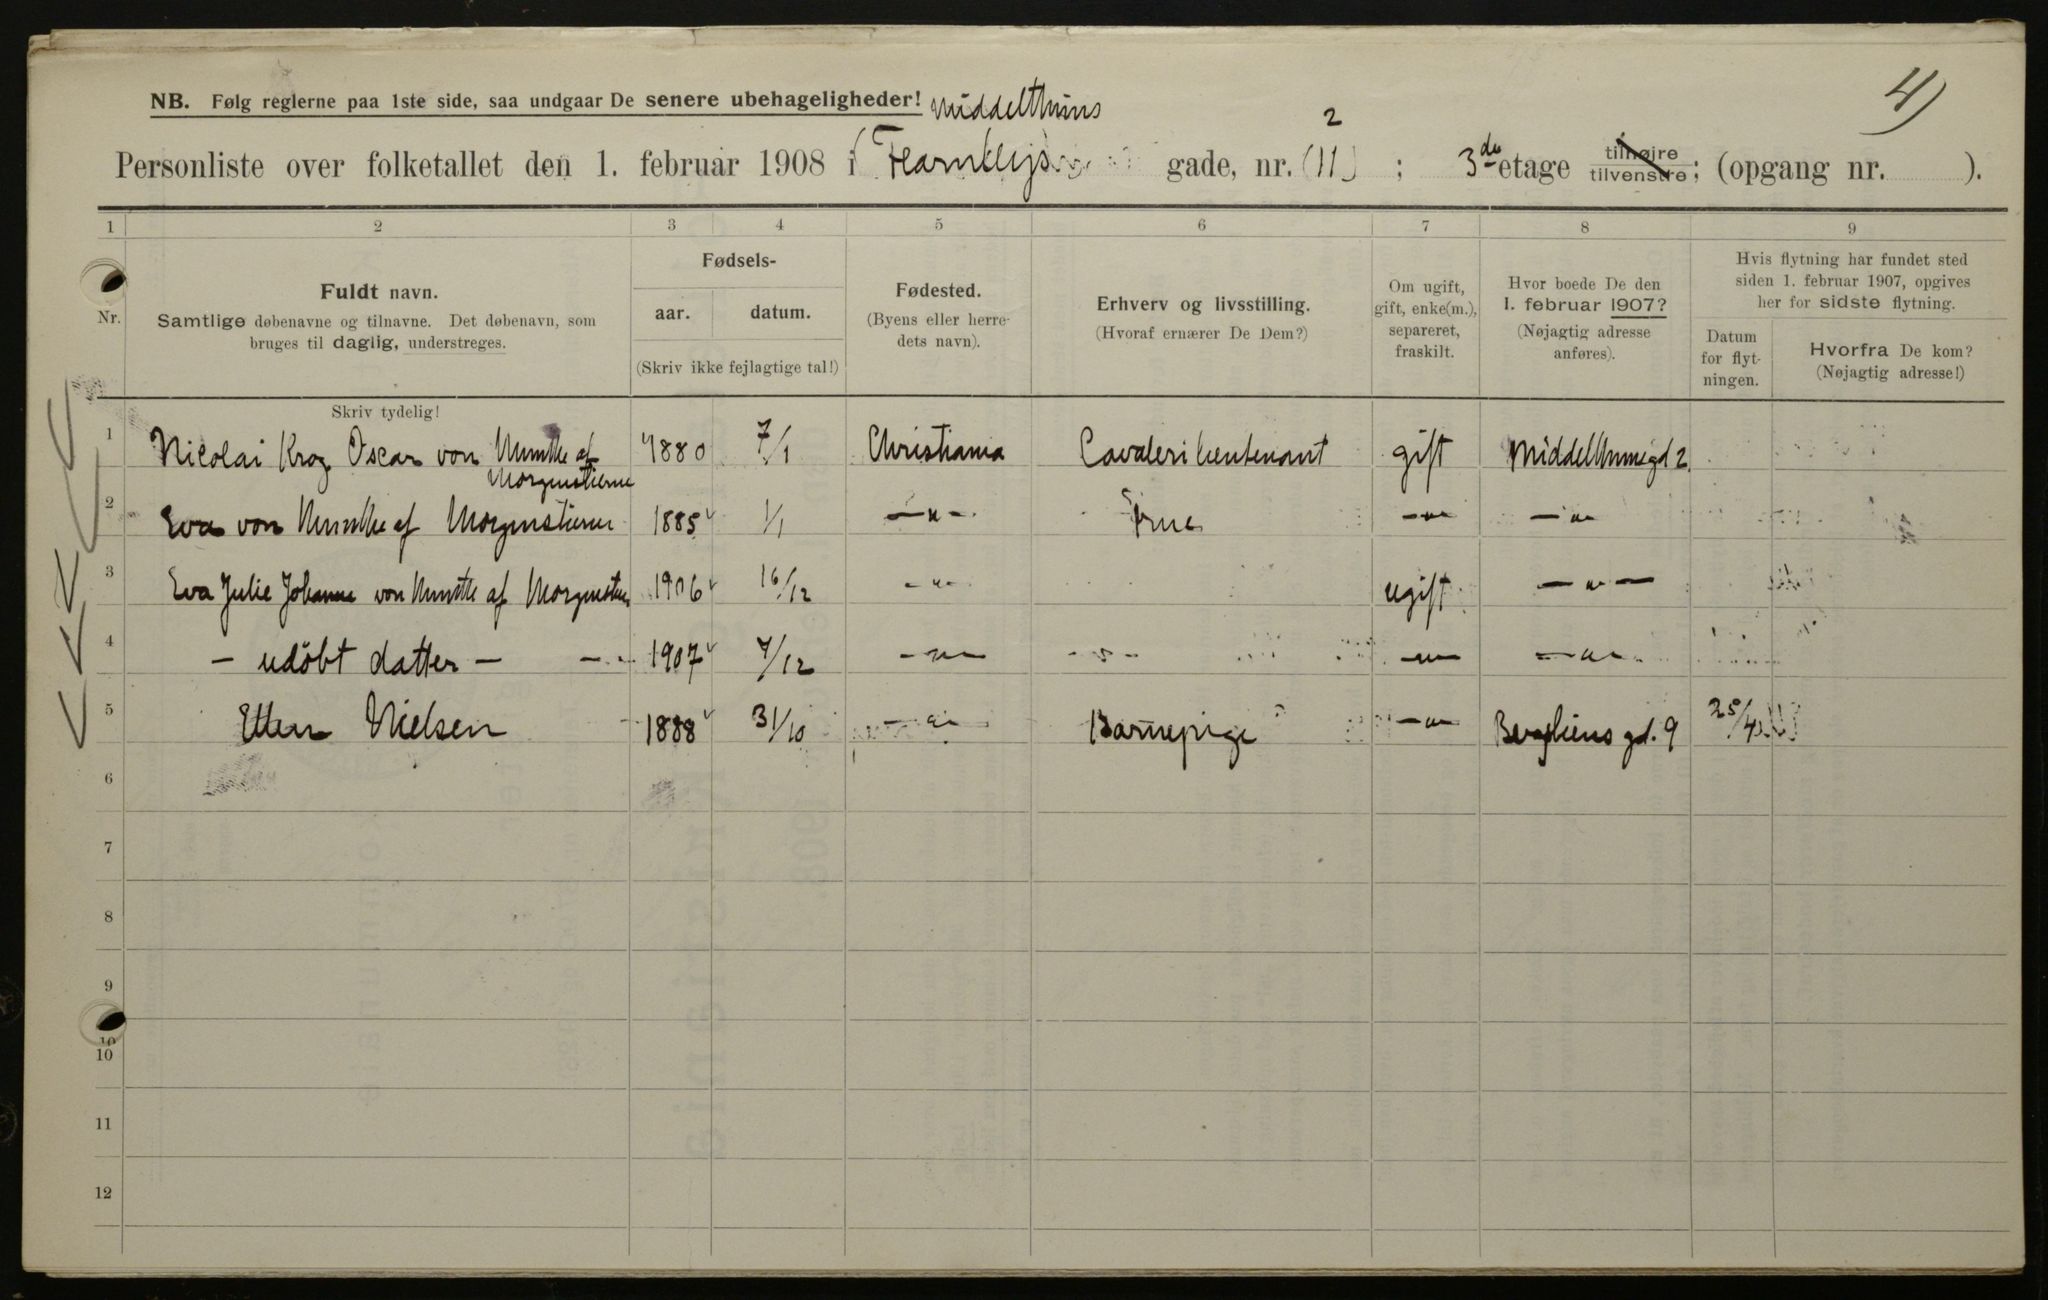 4)
NB. Følg reglerne paa 1ste side, saa undgaar De senere ubehageligheder! Middelthuns
Personliste over folketallet den 1. februar 1908 i gade, nr. (11) 2 ; 3de etage tilhøjre tilvenstre; (opgang nr. ).
1 2 3 4 5 6 7 8 9
Nr.
Fuldt navn.
Samtlige døbenavne og tilnavne. Det døbenavn, som
bruges til daglig, understreges.
Fødsels-
aar. datum.
(Skriv ikke fejlagtige tal!)
Fødested.
(Byens eller herre-
dets navn).
Erhverv og livsstilling.
(Hvoraf ernærer De Dem?)
Om ugift,
gift, enke(m.),
separeret,
fraskilt.
Hvor boede De den
1. februar 1907?
(Nøjagtig adresse
anføres).
Hvis flytning har fundet sted
siden 1. februar 1907, opgives
her for sidste flytning.
Datum
for flyt-
ningen.
Hvorfra De kom?
(Nøjagtig adresse!)
Skriv tydelig!
1 Nicolai Krog Oscar von Munthe af Morgenstierne 1880 7/1 Christiania Cavaleriløitenant gift Middelthunsgd 2.
2 Eva von Munthe af Morgenstierne 1885 1/1 —"— Frue —"— —"—
3 Eva Julie Johanne von Munthe af Morgenstierne 1906 16/12 —"— ugift —"—
4 — udöbt datter — 1907 7/12 —"— —"— —"— —"—
5 Ellen Nielsen 1888 31/10 —"— Barnepige —"— gd. 9 25/4
6
7
8
9
10
10
11
12